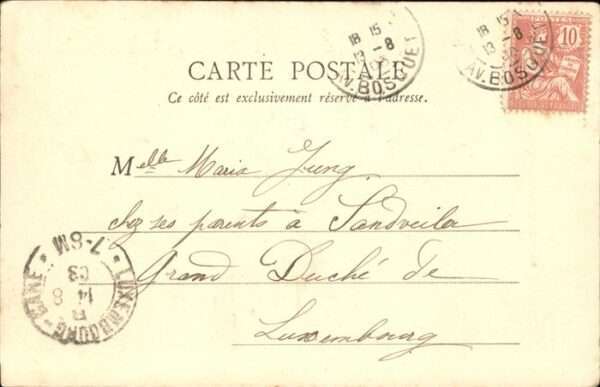 18 15
13 -8
AV. BOSQUET
18 15
13 -8
AV. BOSQUET
POSTES
10
CARTE POSTALE
Ce côté est exclusivement réservé à l'adresse.
Melle Maria Jung.
chez ses parents à Sandveiler
Grand Duché de
Luxembourg
LUXEMBOURG-GARE
7-8M
14 8
03